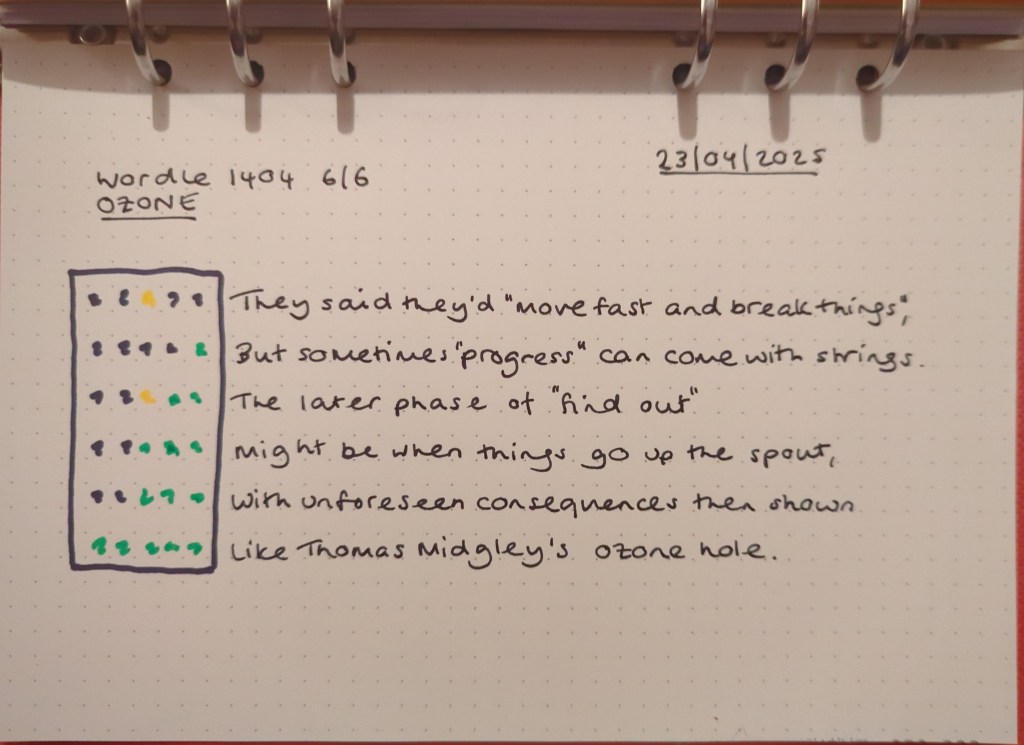 Wordle 1404 6/6
OZONE
23/04/2025
They said they'd "move fast and break things",
But sometimes "progress" can come with strings.
The later phase of "find out"
Might be when things go up the spout,
With unforeseen consequences then shown
Like Thomas Midgley's ozone hole.